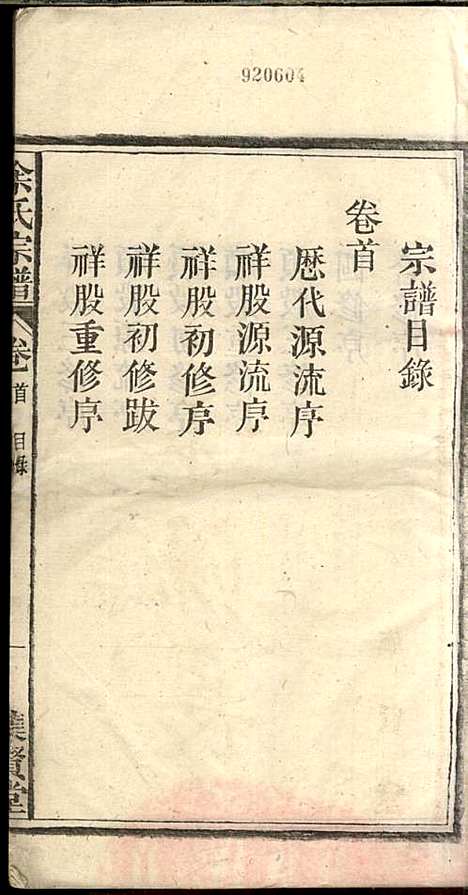 920604
宗譜目錄
卷首
歷代源流序
祥股源流序
祥股初修序
祥股初修跋
祥股重修序
余氏宗譜
卷首
目錄
一
集賢堂